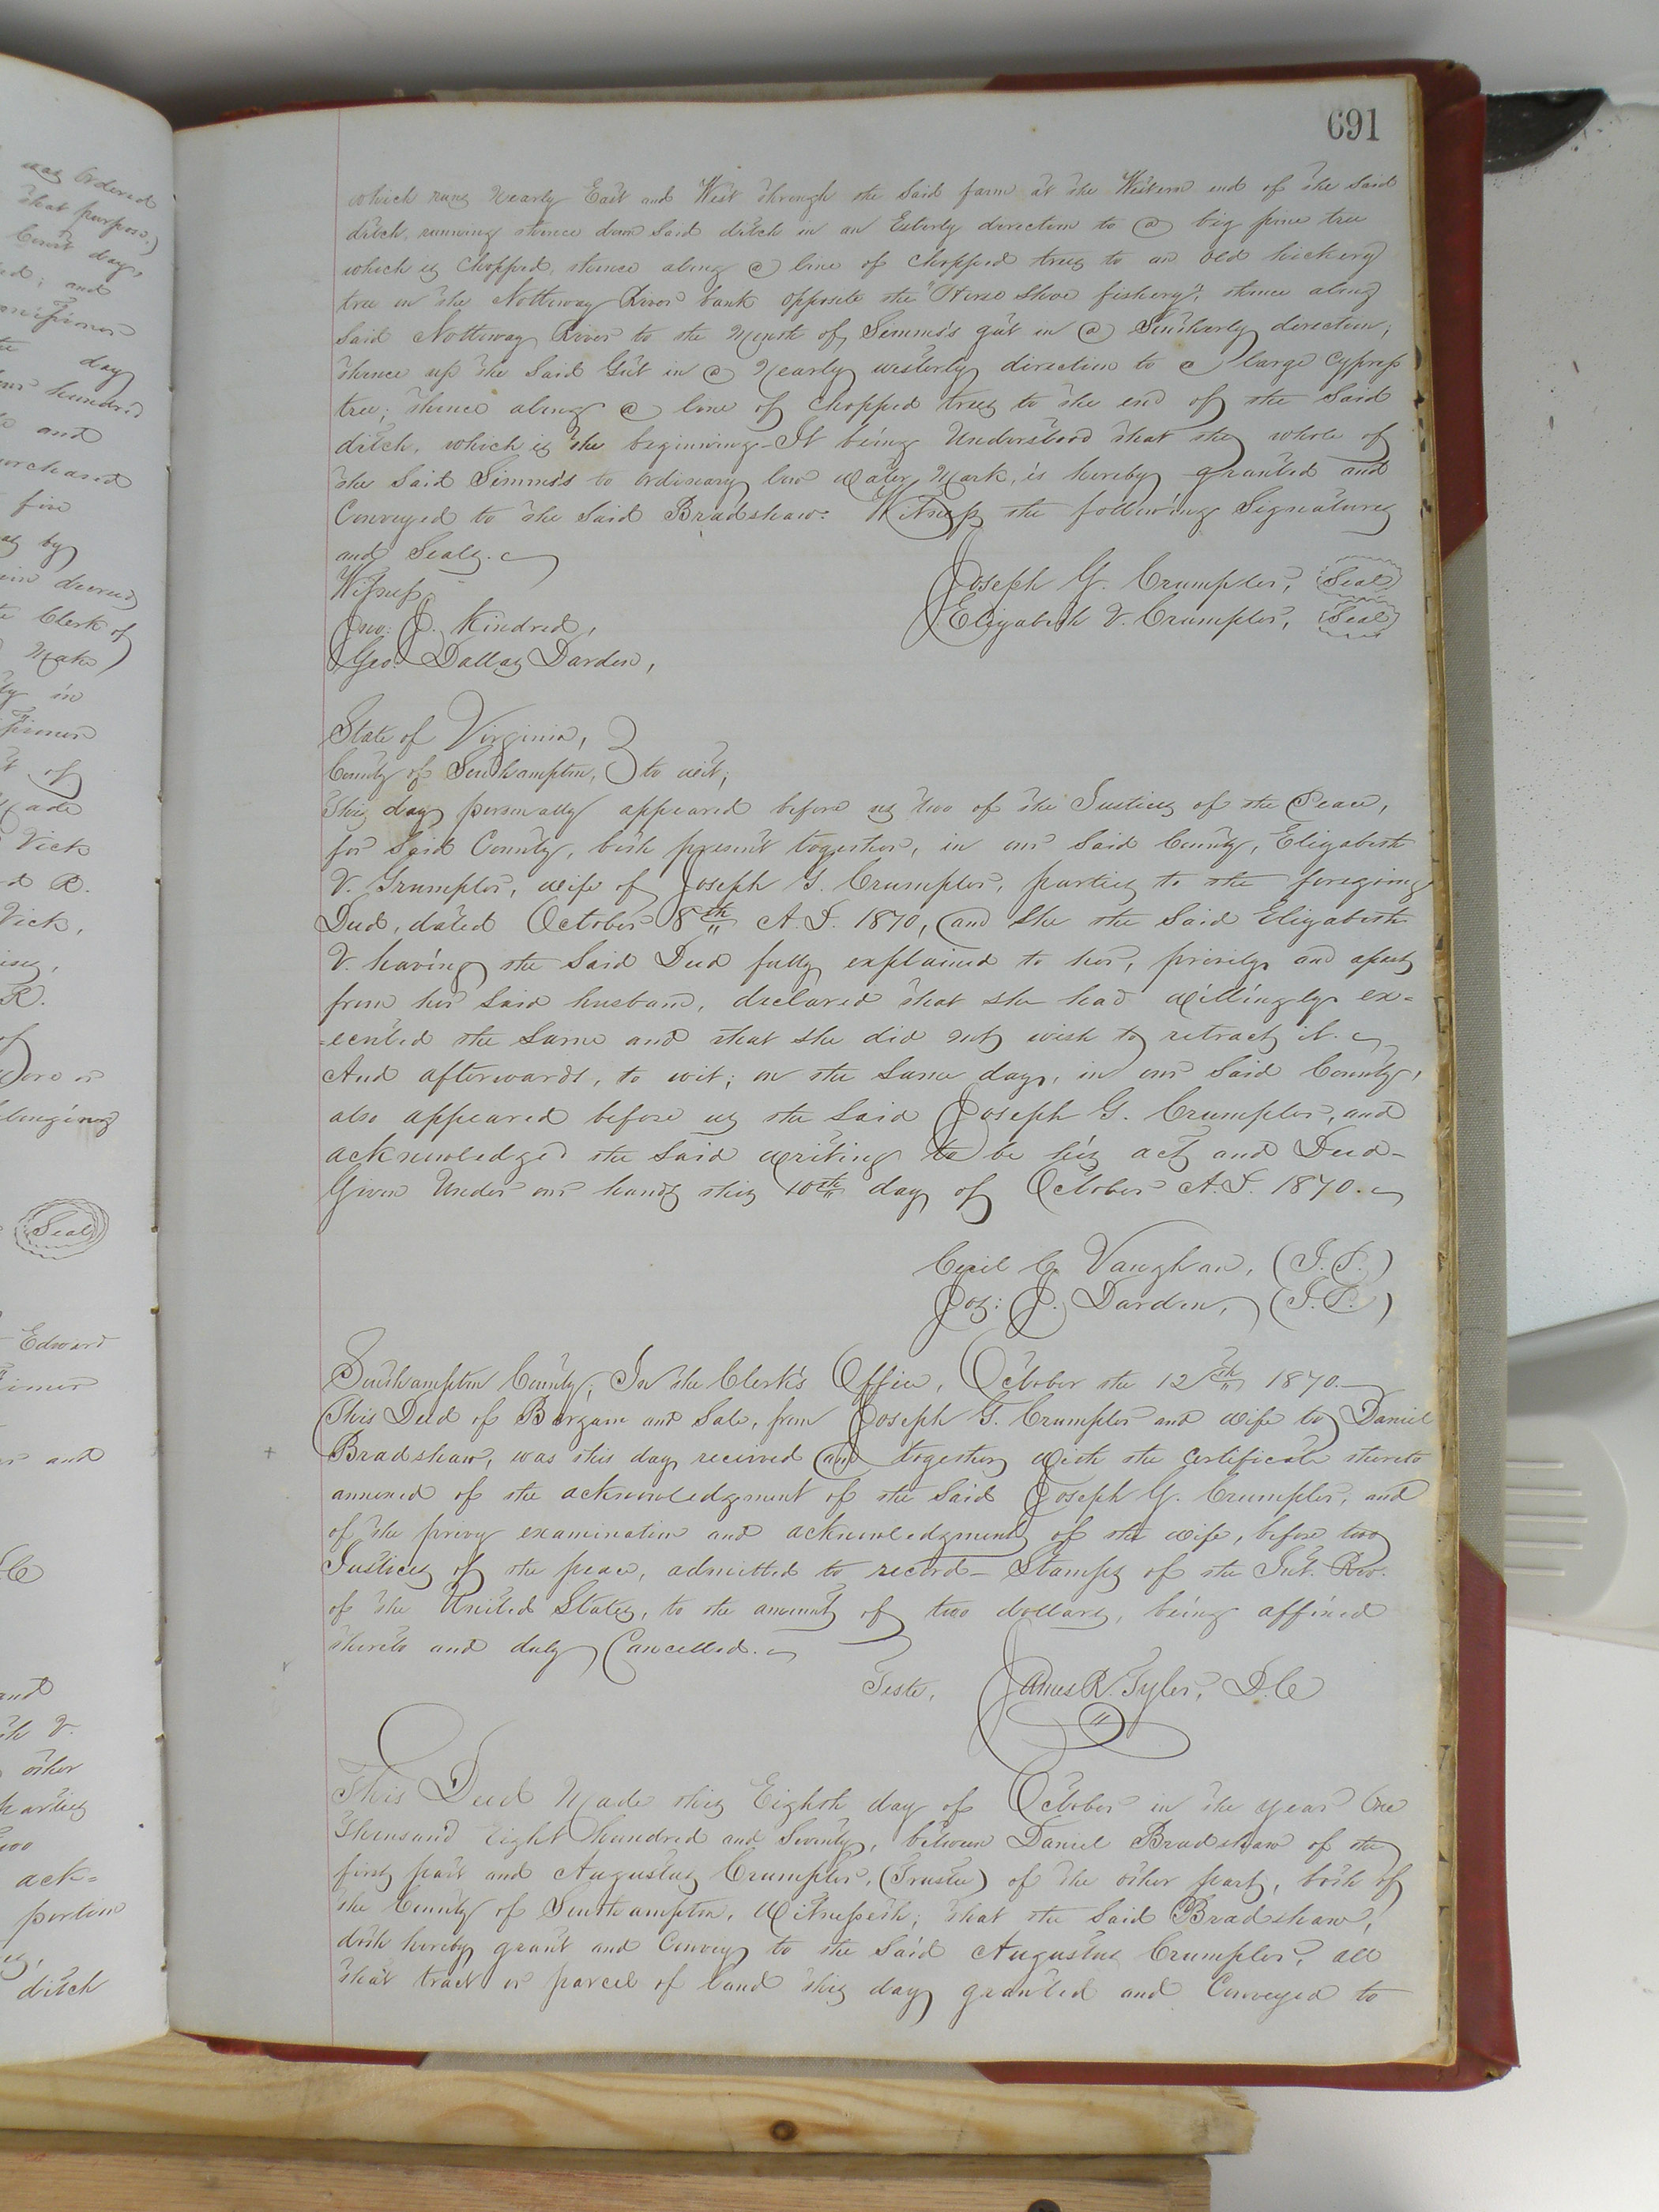 691
which runs Nearly East and West through the Said farm at the Western end of the Said
ditch, running thence down Said ditch in an Esterly direction to a big pine tree
which is Chopped, thence along a line of Chopped trees to an old hickory
tree in the Nottoway River bank opposite the "Horse Shoe fishery"; thence along
Said Nottoway River to the Mouth of Simms's gut in a Southerly direction;
thence up the Said Gut in a Nearly westerly direction to a large Cypress
tree; thence along a line of Chopped trees to the end of the Said
ditch, which is the beginning - It being Understood that the whole of
the Said Simms's to ordinary low water Mark, is hereby granted and
Conveyed to the Said Bradshaw. Witness the following Signatures
and Seals.
Witness
Joseph G. Crumpler, Seal
Elizabeth V. Crumpler, Seal
Jno: J. Kindred,
Geo: Dallas Darden,
State of Virginia,
County of Southampton, to wit;
This day personally appeared before us two of the Justices of the Peace,
for Said County, both present together, in our Said County, Elizabeth
V. Crumpler, wife of Joseph G. Crumpler, parties to the foregoing
Deed, dated October 8th A.D. 1870, and She the Said Elizabeth
V. having the Said Deed fully explained to her, privily and apart
from her Said husband, declared that she had willingly ex=
=ecuted the Same and that She did not wish to retract it.
And afterwards, to wit; on the Same day, in our Said County,
also appeared before us the Said Joseph G. Crumpler, and
acknowledged the Said writing to be his act and Deed -
Given Under our hands this 10th day of October A.D. 1870.
Cecil C. Vaughan, (J.P.)
Jos: J. Darden, (J.P.)
Southampton County; In the Clerk's Office, October the 12th 1870.
This Deed of Bargain and Sale, from Joseph G. Crumpler and wife to Daniel
Bradshaw, was this day received and together with the Certificate thereto
annexed of the acknowledgment of the Said Joseph G. Crumpler, and
of the privy examination and acknowledgment of the wife, before two
Justices of the peace, admitted to record - Stamps of the Int. Rev.
of the United States, to the amount of two dollars, being affixed
thereto and duly Cancelled.
Teste, James R. Tyler, D.C
This Deed Made this Eighth day of October in the year One
Thousand Eight hundred and Seventy, between Daniel Bradshaw of the
first part and Augustus Crumpler, (Trustee) of the other part, both of
the County of Southampton, Witnesseth; that the Said Bradshaw,
doth hereby grant and Convey to the Said Augustus Crumpler, all
that tract or parcel of land this day granted and Conveyed to